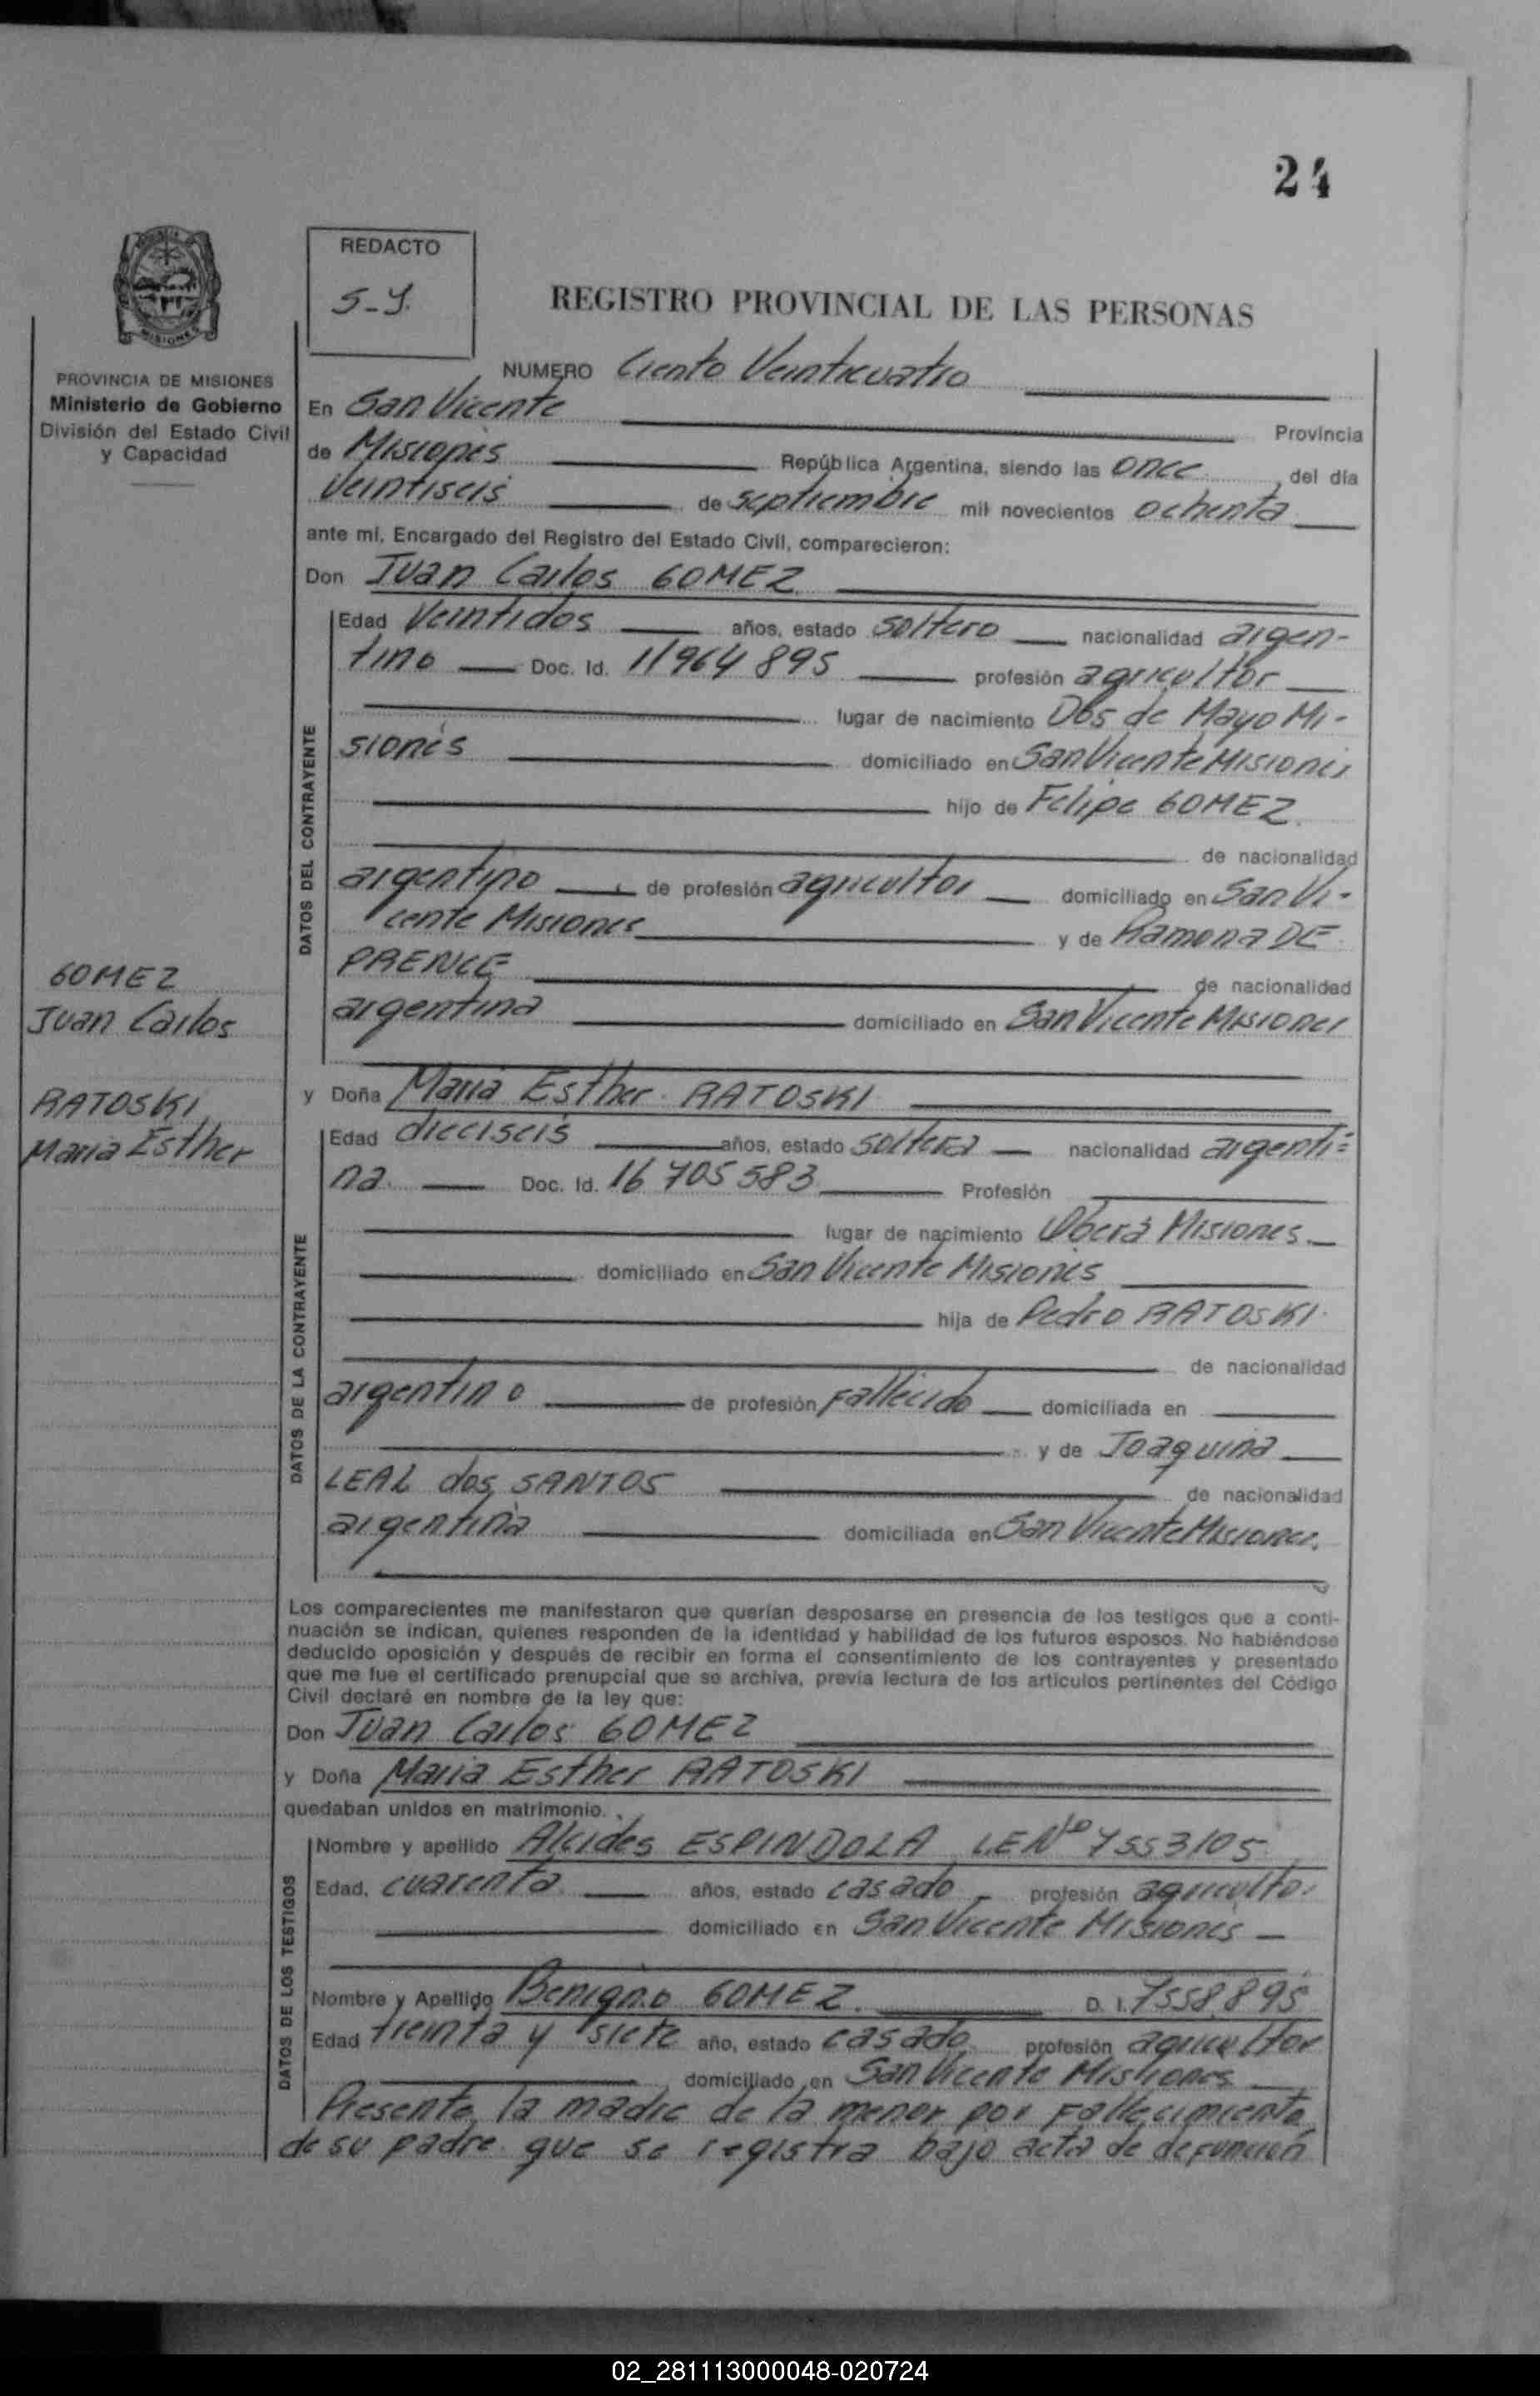 24
REDACTO
S-Y.
REGISTRO PROVINCIAL DE LAS PERSONAS
PROVINCIA DE MISIONES
Ministerio de Gobierno
División del Estado Civil
y Capacidad
NUMERO Ciento Veinticuatro
En San Vicente Provincia
de Misiones República Argentina, siendo las once del día
Veintiseis de septiembre mil novecientos ochenta
ante mí, Encargado del Registro del Estado Civil, comparecieron:
Don Juan Carlos GOMEZ
DATOS DEL CONTRAYENTE
Edad Veintidos años, estado soltero nacionalidad argen-
tino Doc. Id. 11964895 profesión agricultor
lugar de nacimiento Dos de Mayo Mi-
siones domiciliado en San Vicente Misiones
hijo de Felipe GOMEZ.
de nacionalidad
argentino de profesión agricultor domiciliado en San Vi-
cente Misiones y de Ramona DE
PRENCE de nacionalidad
argentina domiciliado en San Vicente Misiones
GOMEZ
Juan Carlos
RATOSKI
Maria Esther
y Doña Maria Esther RATOSKI
DATOS DE LA CONTRAYENTE
Edad dieciseis años, estado soltera nacionalidad argenti=
na. Doc. Id. 16705583 Profesión
lugar de nacimiento Oberá Misiones.
domiciliado en San Vicente Misiones
hija de Pedro RATOSKI.
de nacionalidad
argentino de profesión Fallecido domiciliada en
y de Joaquina
LEAL dos SANTOS de nacionalidad
argentina domiciliada en San Vicente Misiones.
Los comparecientes me manifestaron que querían desposarse en presencia de los testigos que a conti-
nuación se indican, quienes responden de la identidad y habilidad de los futuros esposos. No habiéndose
deducido oposición y después de recibir en forma el consentimiento de los contrayentes y presentado
que me fue el certificado prenupcial que se archiva, previa lectura de los artículos pertinentes del Código
Civil declaré en nombre de la ley que:
Don Juan Carlos GOMEZ
y Doña Maria Esther RATOSKI
quedaban unidos en matrimonio.
DATOS DE LOS TESTIGOS
Nombre y apellido Alcides ESPINDOLA LE Nº 7553105
Edad, cuarenta años, estado casado profesión agricultor
domiciliado en San Vicente Misiones
Nombre y Apellido Benigno GOMEZ. D. I. 7558895
Edad treinta y siete año, estado casado profesión agricultor
domiciliado en San Vicente Misiones
Presente la madre de la menor por Fallecimiento
de su padre que se registra bajo acta de defunción
02_281113000048-020724